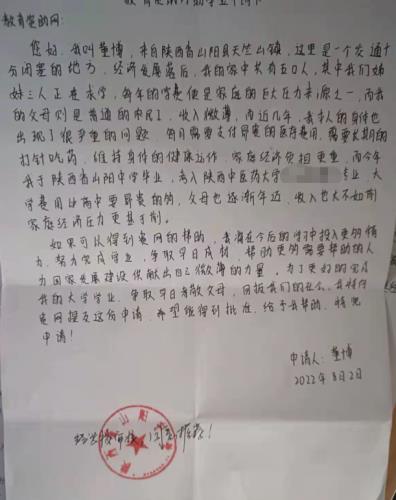 教育资助网:
您好,我叫董博,来自陕西省山阳县天竺山镇,这里是一个交通十
分闭塞的地方,经济发展落后,我的家中共有五口人,其中我们姊
妹三人正在求学,每年的学费便是家的巨大压力来源之一,而我
的父母则是普通的农民,收入微薄,而近几年,我本人的身体也
出现了很严重的问题,每月需要支付昂贵的医疗费用,需要长期的
打针吃药,维持身体的健康运作,家庭经济负担更重,而今年
我于陕西省山阳中学毕业,考入陕西中医药大学 专业,大
学费用比高中要昂贵的多,父母也逐渐年迈,收入也大不如前
家庭经济压力更甚于前。
如果可以得到贵网的帮助,我将在今后的学习中投入更多的精
力,努力完成学业,争取早日成材,帮助更多需要帮助的人
为国家发展建设贡献出自己微薄的力量,为了更好的完成
我的大学学业,争取早日孝敬父母,回报我们的社会,我特向
贵网提交这份申请,希望能得到批准,给予我帮助,特此
申请!
申请人:董博
2022年8月2日
山阳